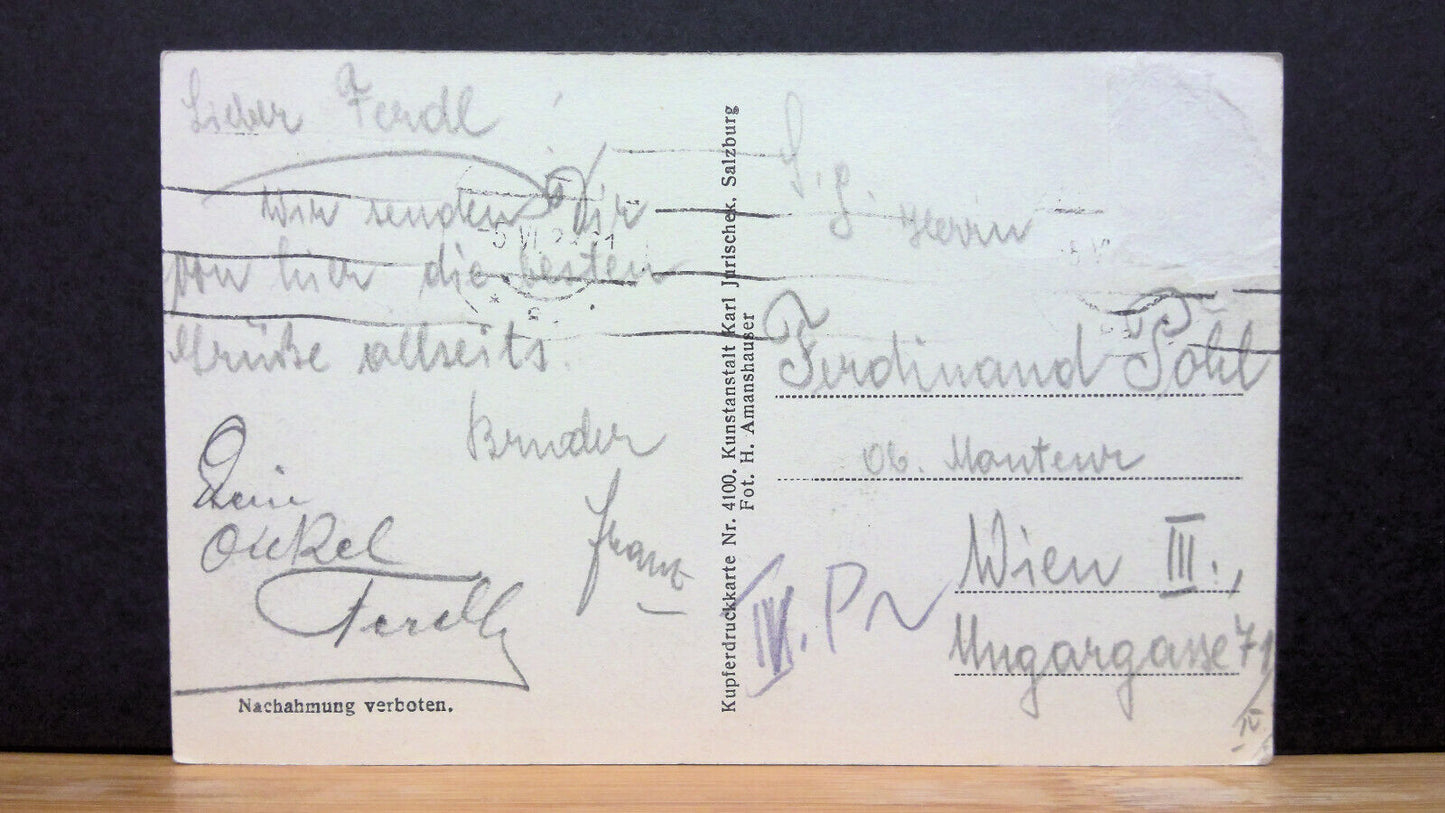 Lieber Ferdl
Wir senden Dir
von hier die besten
Grüße allseits.
Bruder
Franz
Dein
Onkel
Ferdl
Nachahmung verboten.
Kupferdruckkarte Nr. 4100. Kunstanstalt Karl Jurischek, Salzburg
Fot. H. Amanshauser
Herrn
Ferdinand Pohl
Ob. Monteur
Wien III.,
Ungargasse 71
IV